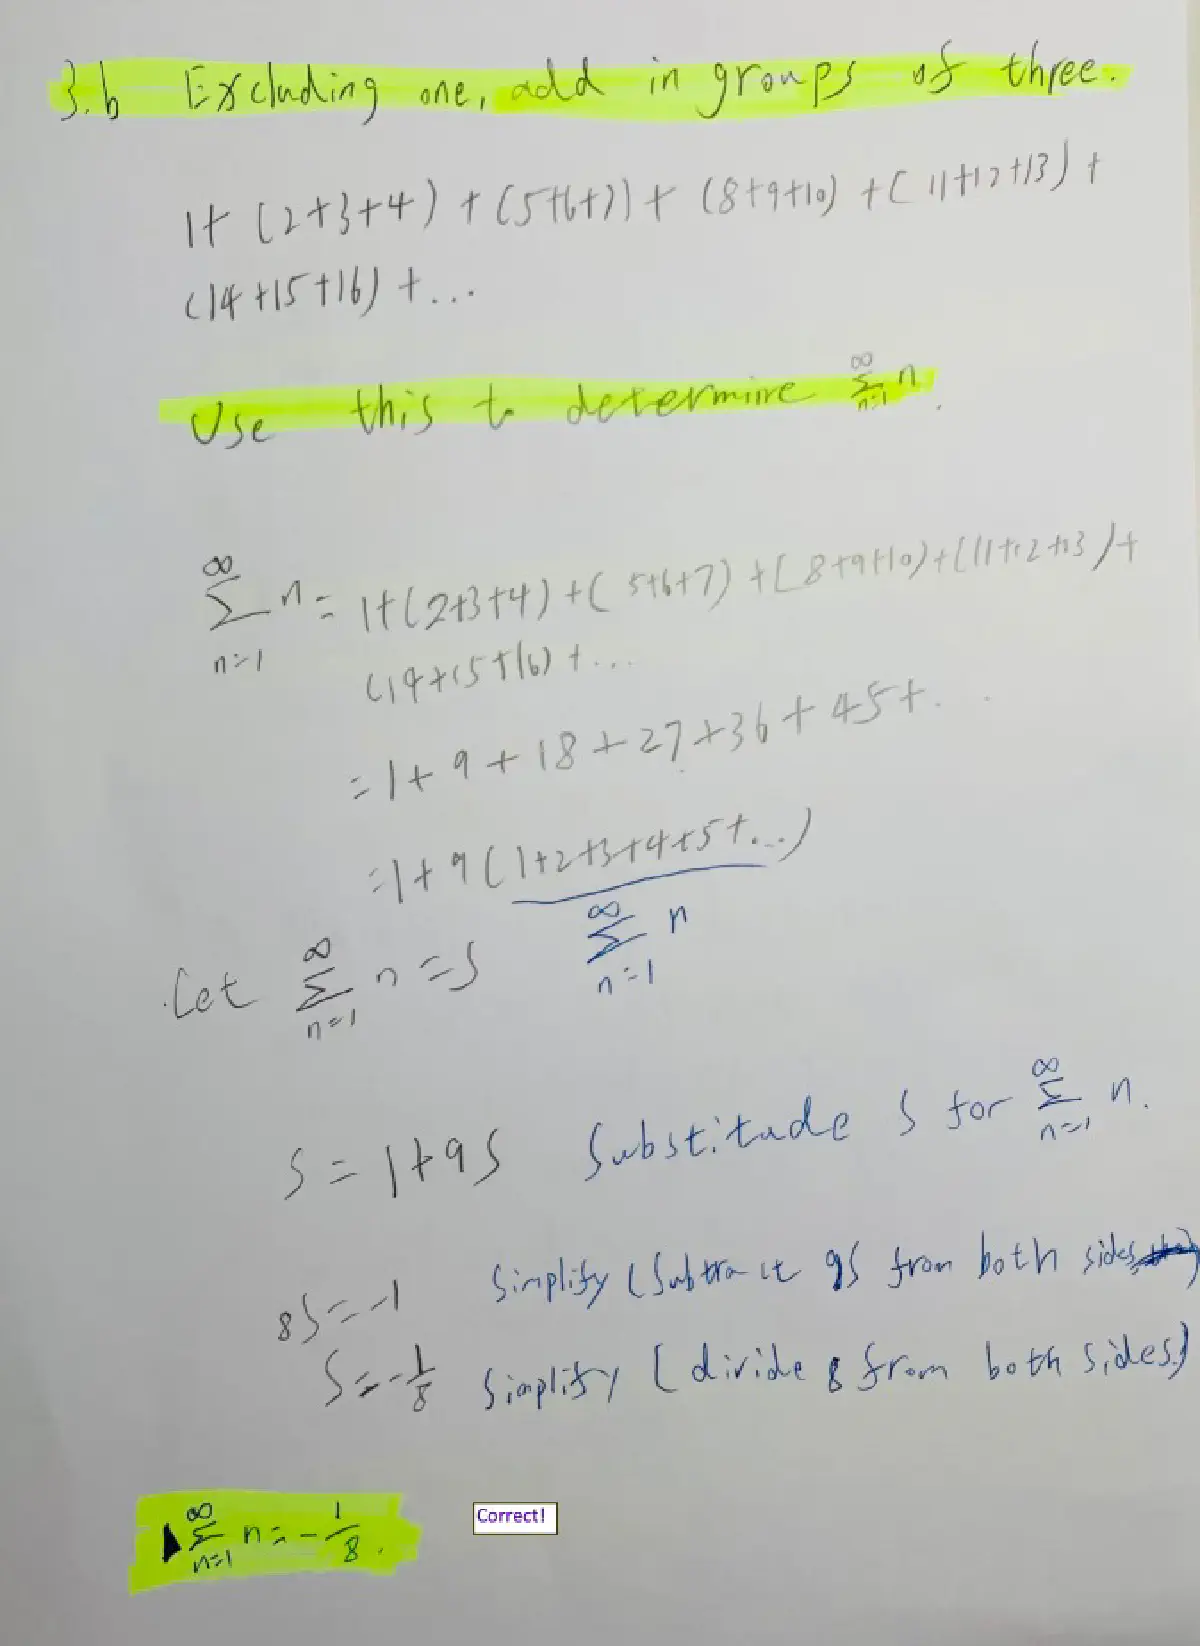 3.b Excluding one, add in groups of three.
1+ (2+3+4) + (5+6+7) + (8+9+10) + (11+12+13) +
(14+15+16) + ...
Use this to determine ∞ Σ n=1 n.
∞ Σ n=1 n = 1+(2+3+4)+(5+6+7)+(8+9+10)+(11+12+13)+
(14+15+16) + ...
= 1 + 9 + 18 + 27 + 36 + 45 + ...
= 1 + 9 (1+2+3+4+5+...)
∞ Σ n=1 n
Let ∞ Σ n=1 n = S
S = 1+9S Substitude S for ∞ Σ n=1 n.
8S = -1 Simplify (Subtract 9S from both sides)
S = -1/8 Simplify (divide 8 from both sides.)
∞ Σ n=1 n = -1/8.
Correct!